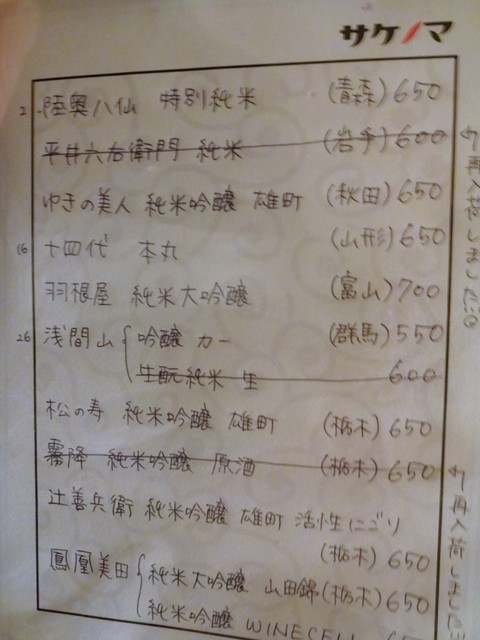 サケノマ
2 陸奥八仙 特別純米 (青森)650
平井六右衛門 純米 (岩手)600
ゆきの美人 純米吟醸 雄町 (秋田)650
16 十四代 本丸 (山形)650
羽根屋 純米大吟醸 (富山)700
26 浅間山 吟醸 カー (群馬)550
生酛純米 生 600
松の寿 純米吟醸 雄町 (栃木)650
霧降 純米吟醸 原酒 (栃木)650
辻善兵衛 純米吟醸 雄町 活性にごり
(栃木)650
鳳凰美田 純米大吟醸 山田錦(栃木)650
純米吟醸 WINECELL
再入荷しました
再入荷しました